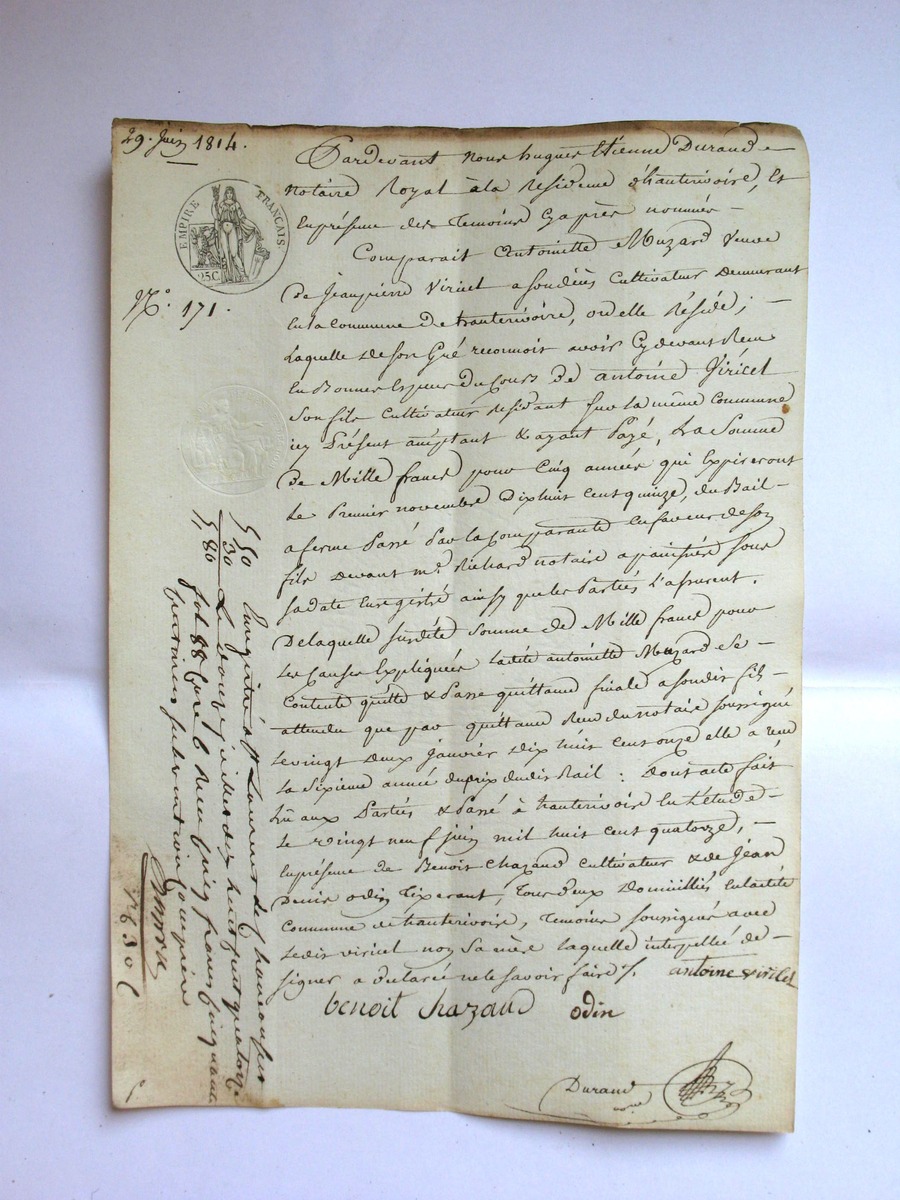 29. Juin 1814.
EMPIRE FRANÇAIS
25 C.
N.º 171.
Pardevant nous hugues Etienne Durand
notaire Royal à la Residence d'hauterivoire, Et
En présence des temoins Cyaprès nommés
Comparait Antoinette Muzard veuve
de Jeanpierre Viricel asondécès Cultivateur Demeurant
En la Commune de hauterivoire, où elle Réside ;
Laquelle de son Gré reconnoit avoir Cydevant Recu
En Bonnes Espèces du Cours De antoine Viricel
Son fils Cultivateur residant sur la même Commune
icy Présent acceptant & ayant Payé, La Somme
De Mille francs pour Cinq années qui Expireront
Le Premier novembre Dixhuit Cent quinze, du Bail
a ferme Passé Par la Comparante En faveur de son
fils Devant m.e Richard notaire sous
sa date Enregistré ainsy que les Parties L'assurent.
De laquelle susdite Somme de Mille francs pour
Les Causes Expliquées Ladite antoinette Muzard Se
Contente quitte & Passe quittance finale asondit fils
attendu que par quittance Recu du notaire soussigné
Le vingt deux Janvier dix huit Cent onze elle a recu
La Sixieme année du prix dudit Bail : Dont acte fait
Lû aux Parties & Passé à hauterivoire En l'Etude
Le vingt neuf juin mil huit cent quatorze,
En présence de Benoit Chazaud Cultivateur & de Jean
Denis odin Tixerant, tous deux domiciliés En ladite
Commune de hauterivoire, Temoins soussignés avec
Ledit viricel non Sa mère laquelle interpellée de
signer a declaré ne le savoir faire /.
antoine viricel
benoit Chazaud
odin
Durand
Enregistré à St Laurent de Chamousset
Le douze juillet dix huit cent quatorze
fol. 88 Cazé 6 Recu cinq francs cinquante
centimes subvention comprise
5 50